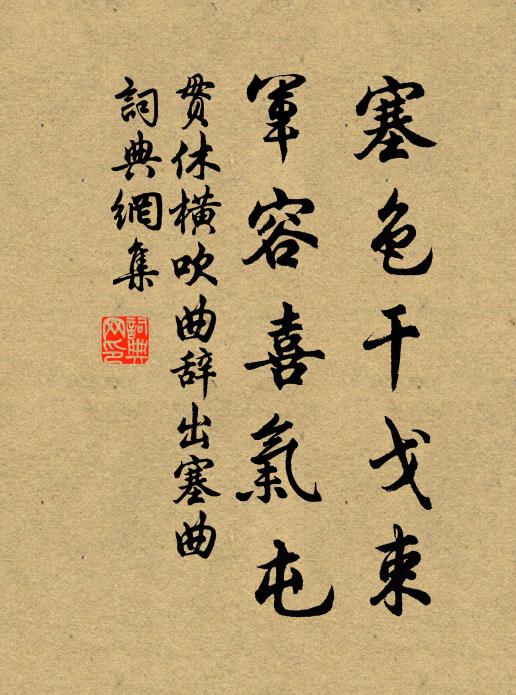 塞色干戈束
軍容喜氣屯
贯休橫吹曲辞出塞曲
詞典網集
詞典网印